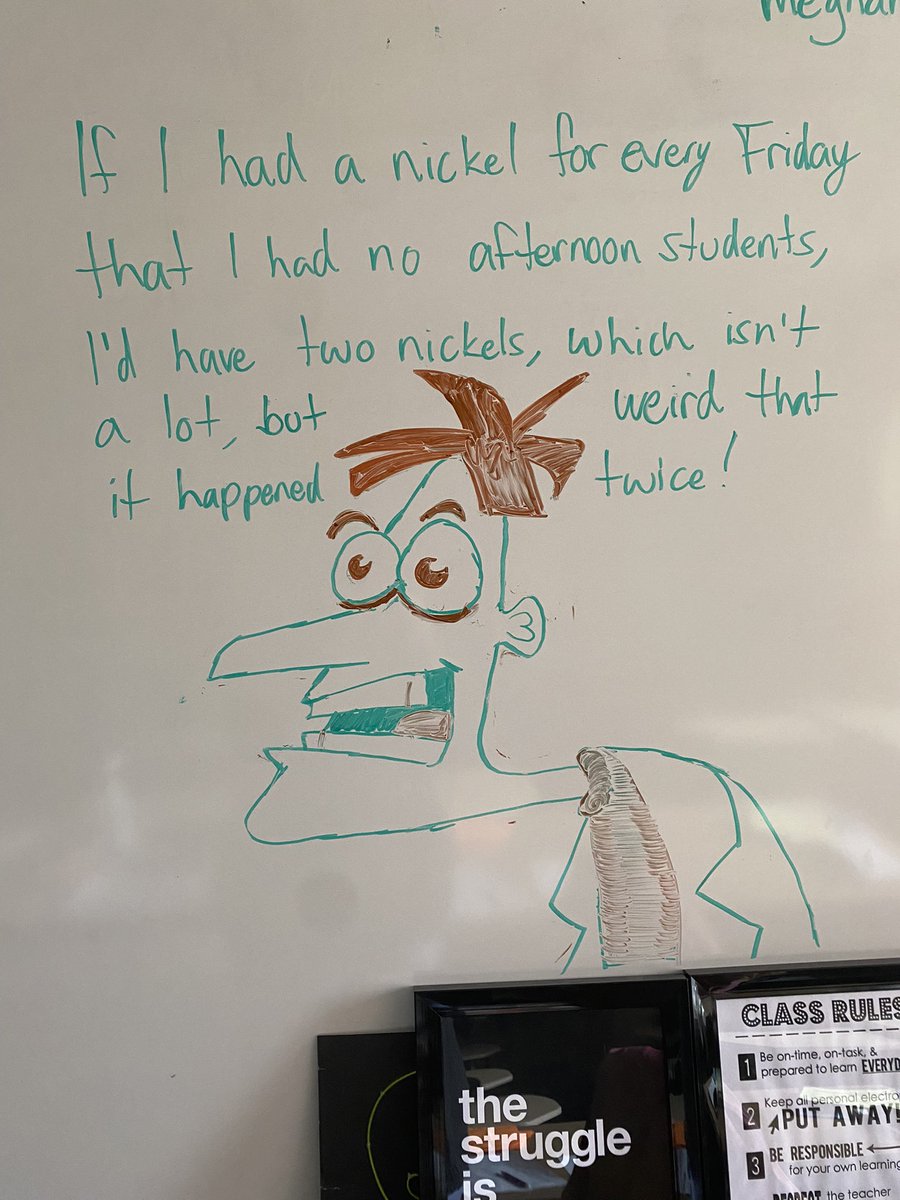 Meghan
If I had a nickel for every Friday
that I had no afternoon students,
I'd have two nickels, which isn't
a lot, but weird that
it happened twice!
the
struggle
is
CLASS RULES
1 Be on-time, on-task, &
prepared to learn
2 Keep all personal
PUT AWAY!
3 BE RESPONSIBLE
for your own learning
the teacher